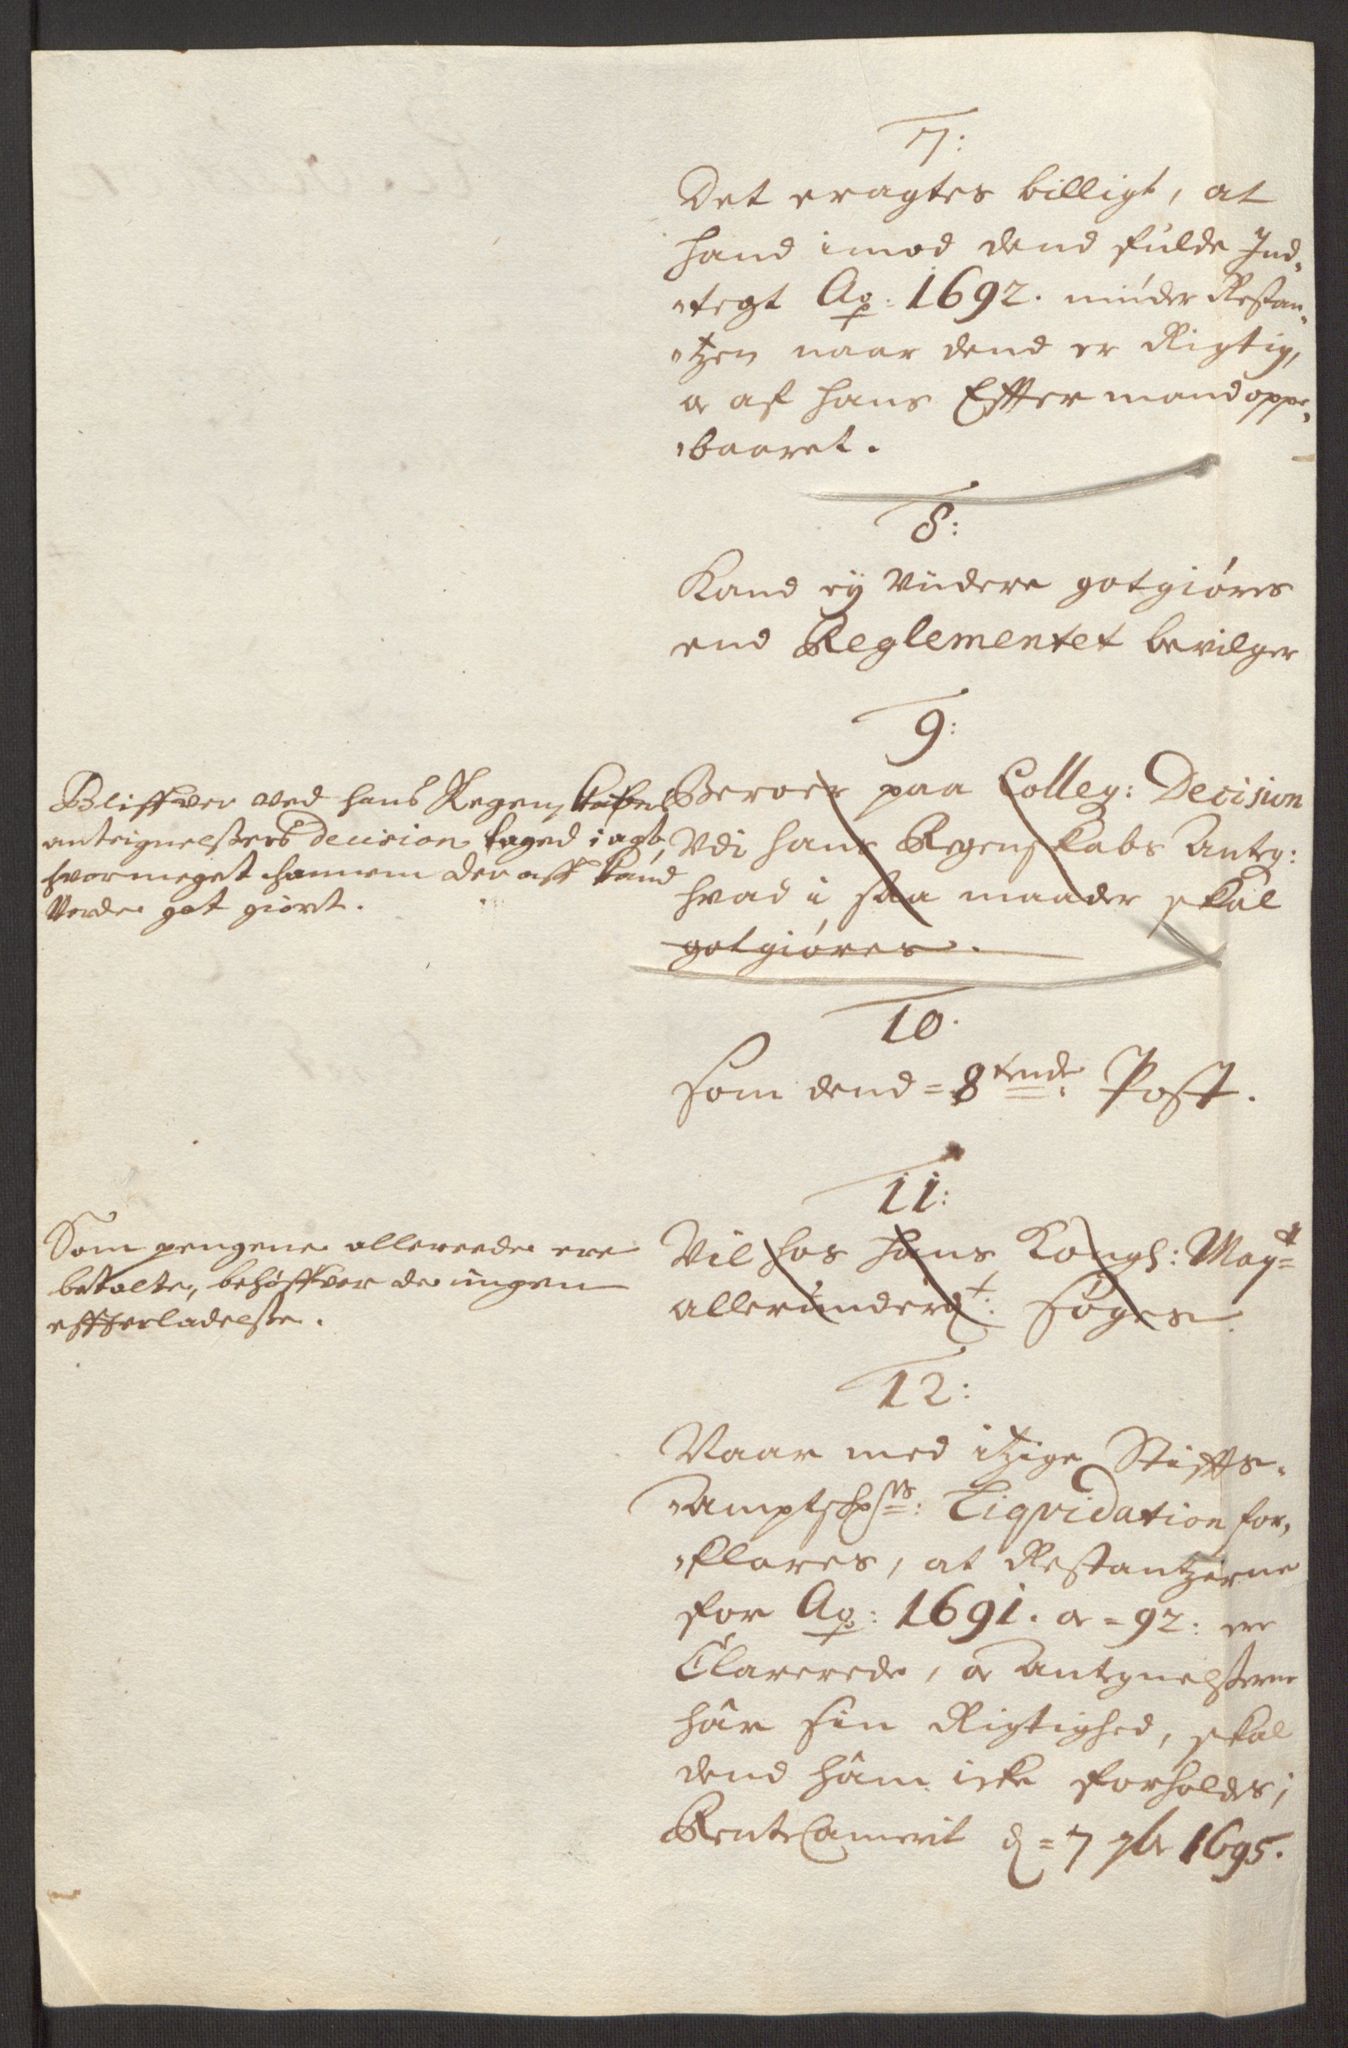 7:
Det eragtes billigt, at
hand imod dend fulde Ind-
tegt Ao: 1692. nÿder Restan-
tzen naar dend er Rigtig,
og af hans Efftermand oppe-
baaret.
8:
Kand eÿ Videre gotgiøres
end Reglementet bevilger
9:
Beroer paa Colleg: Decision
Vdi hans Regenskabs Anteg:
hvad i saa maader skal
gotgiøres.
Bliffver ved hans Regenskabs
anteignelßers Decision taged i agt,
hvormeget hannem der aff kand
Vorde got giort.
10.
Som dend 8tende Post.
11:
Vil hos hans Kongl: Mayt
allerunderdt: søges.
Som pengene allereede ere
betalte, behøffver de ingen
effterladelße.
12:
Naar med itzige Stiffts-
Amptsch: Liqvidation for-
klares, at Restantzerne
for Ao: 1691. og 92: ere
Clarerede, og Antegnelßerne
hâr sin Rigtighed, skal
dend hâm icke forholdes,
RenteCamerit d 7 7br 1695.